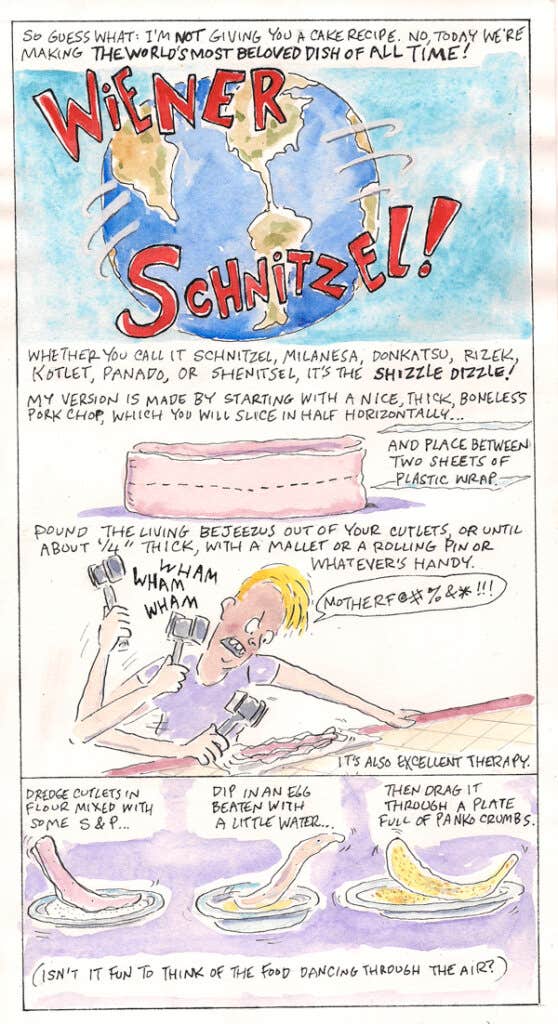 SO GUESS WHAT: I'M NOT GIVING YOU A CAKE RECIPE. NO, TODAY WE'RE
MAKING THE WORLD'S MOST BELOVED DISH OF ALL TIME!
WIENER
SCHNITZEL!
WHETHER YOU CALL IT SCHNITZEL, MILANESA, DONKATSU, RIZEK,
KOTLET, PANADO, OR SHENITSEL, IT'S THE SHIZZLE DIZZLE!
MY VERSION IS MADE BY STARTING WITH A NICE, THICK, BONELESS
PORK CHOP, WHICH YOU WILL SLICE IN HALF HORIZONTALLY...
AND PLACE BETWEEN
TWO SHEETS OF
PLASTIC WRAP.
POUND THE LIVING BEJEEZUS OUT OF YOUR CUTLETS, OR UNTIL
ABOUT 1/4" THICK, WITH A MALLET OR A ROLLING PIN OR
WHATEVER'S HANDY.
WHAM
WHAM
WHAM
MOTHERF@#%&*!!!
IT'S ALSO EXCELLENT THERAPY.
DREDGE CUTLETS IN
FLOUR MIXED WITH
SOME S & P...
DIP IN AN EGG
BEATEN WITH
A LITTLE WATER...
THEN DRAG IT
THROUGH A PLATE
FULL OF PANKO CRUMBS.
(ISN'T IT FUN TO THINK OF THE FOOD DANCING THROUGH THE AIR?)